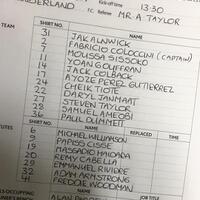 Kick-off time 13:30
NDERLAND F.C. Referee MR. A TAYLOR
SHIRT NO. NAME
31 JAK ALNWICK
2 FABRICIO COLOCCINI (CAPTAIN)
7 MOUSSA SISSOKO
11 YOAN GOUFFRAN
14 JACK COLBACK
17 AYOZE PEREZ GUTIERREZ
24 CHEIK TIOTE
22 DARYL JANMAAT
27 STEVEN TAYLOR
28 SAMUEL AMEOBI
36 PAUL DUMMETT
TUTES SHIRT NO. NAME REPLACED TIME
6 MICHAEL WILLIAMSON
9 PAPISS CISSE
19 MASSADIO HAIDARA
20 REMY CABELLA
29 EMMANUEL RIVIERE
32 ADAM ARMSTRONG
42 FREDDIE WOODMAN
LS OCCUPYING NAME JOB TITLE